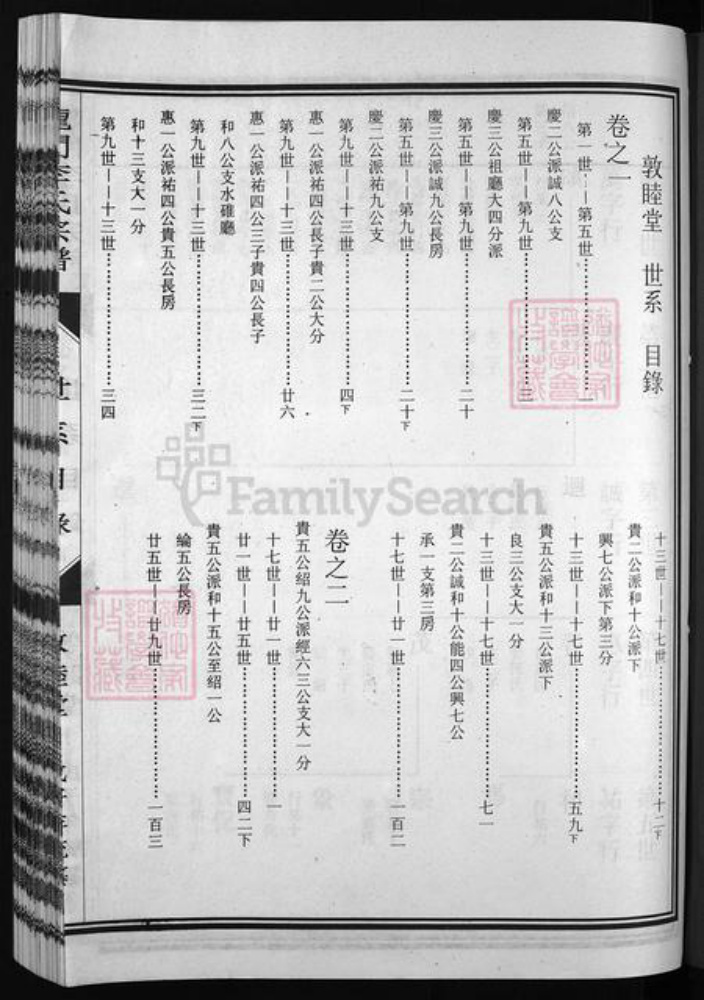 敦睦堂 世系 目錄
卷之一
第一世——第五世……………一
慶二公派誠八公支
第五世——第九世……………三
慶三公祖廳大四分派
第五世——第九世……………二十
慶三公派誠九公長房
第五世——第九世……………二十下
慶二公派祐九公支
第九世——十三世……………四下
惠一公派祐四公長子貴二公大分
第九世——十三世……………廿六
惠一公派祐四公三子貴四公長子
和八公支水碓廳
第九世——十三世……………三二下
惠一公派祐四公貴五公長房
和十三支大一分
第九世——十三世……………三四
十三世——十七世……………十二下
貴二公派和十公派下
興七公派下第三分
十三世——十七世……………五九下
貴五公派和十三公派下
良三公支大一分
十三世——十七世……………七一
貴二公誠和十公能四公興七公
承一支第三房
十七世——廿一世……………一百二
卷之二
貴五公紹九公派經六三公支大一分
十七世——廿一世……………一
廿一世——廿五世……………四二下
貴五公派和十五公至紹一公
綸五公長房
廿五世——廿九世……………一百三
世系目錄
FamilySearch